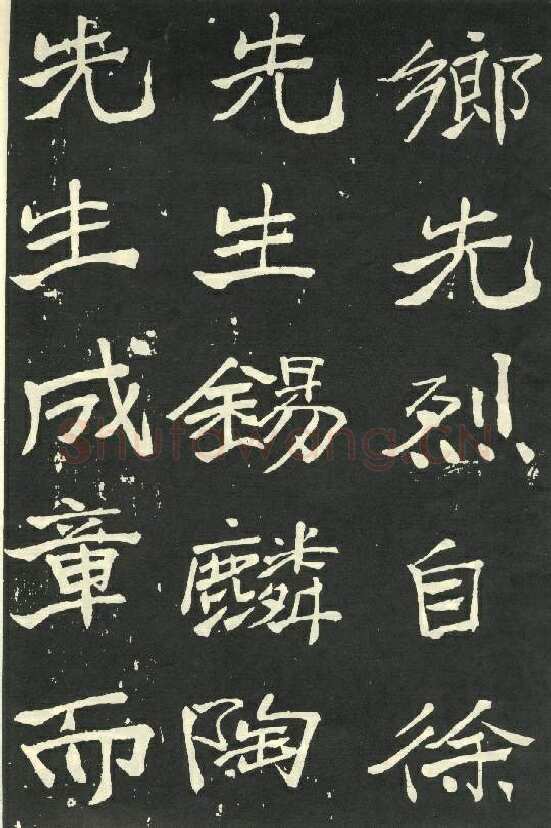 鄉先烈自徐
先生錫麟陶
先生成章而
Shufawang.CN